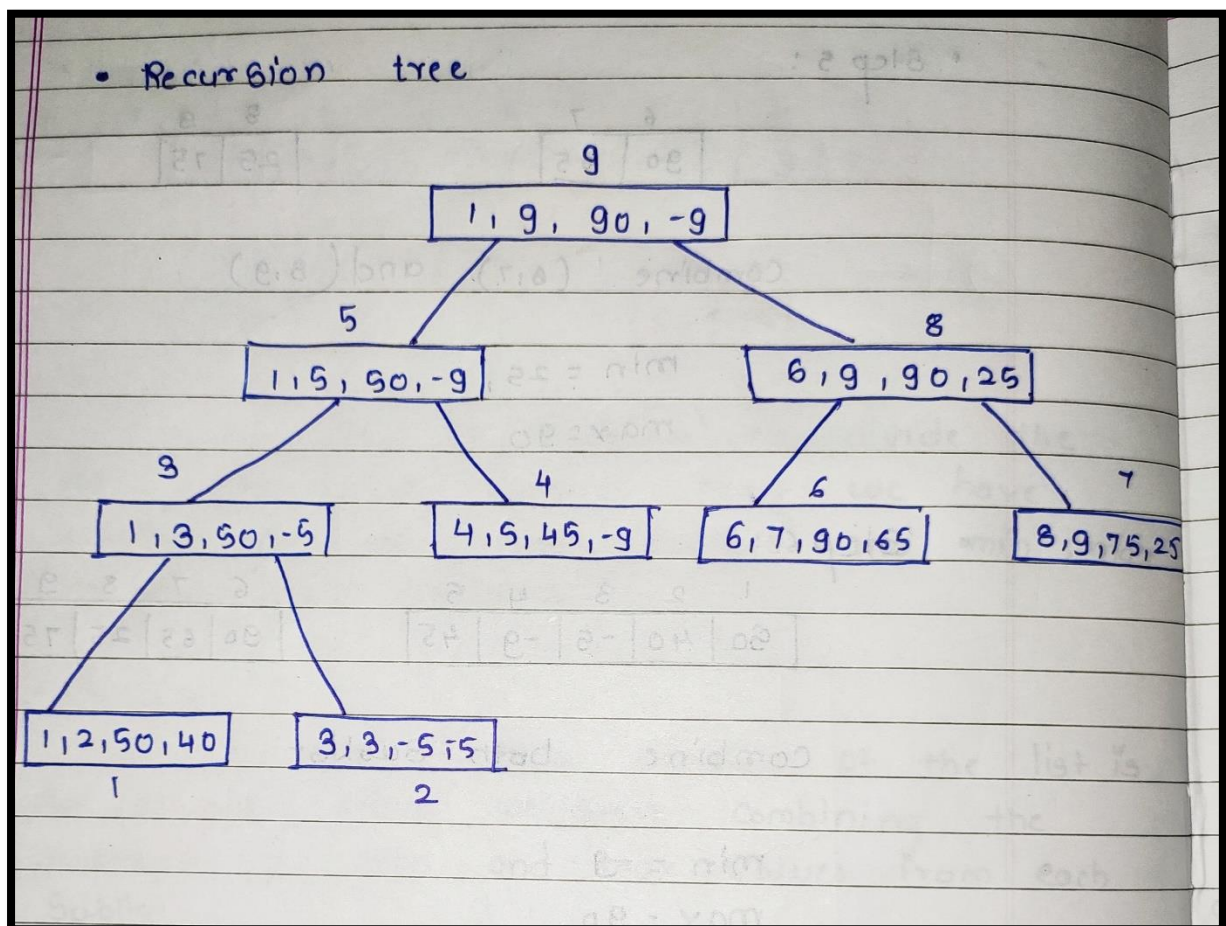 • Recursion tree
9
1, 9, 90, -9
5 8
1, 5, 50, -9 6, 9, 90, 25
3 4 6 7
1, 3, 50, -5 4, 5, 45, -9 6, 7, 90, 65 8, 9, 75, 25
1, 2, 50, 40 3, 3, -5, -5
1 2